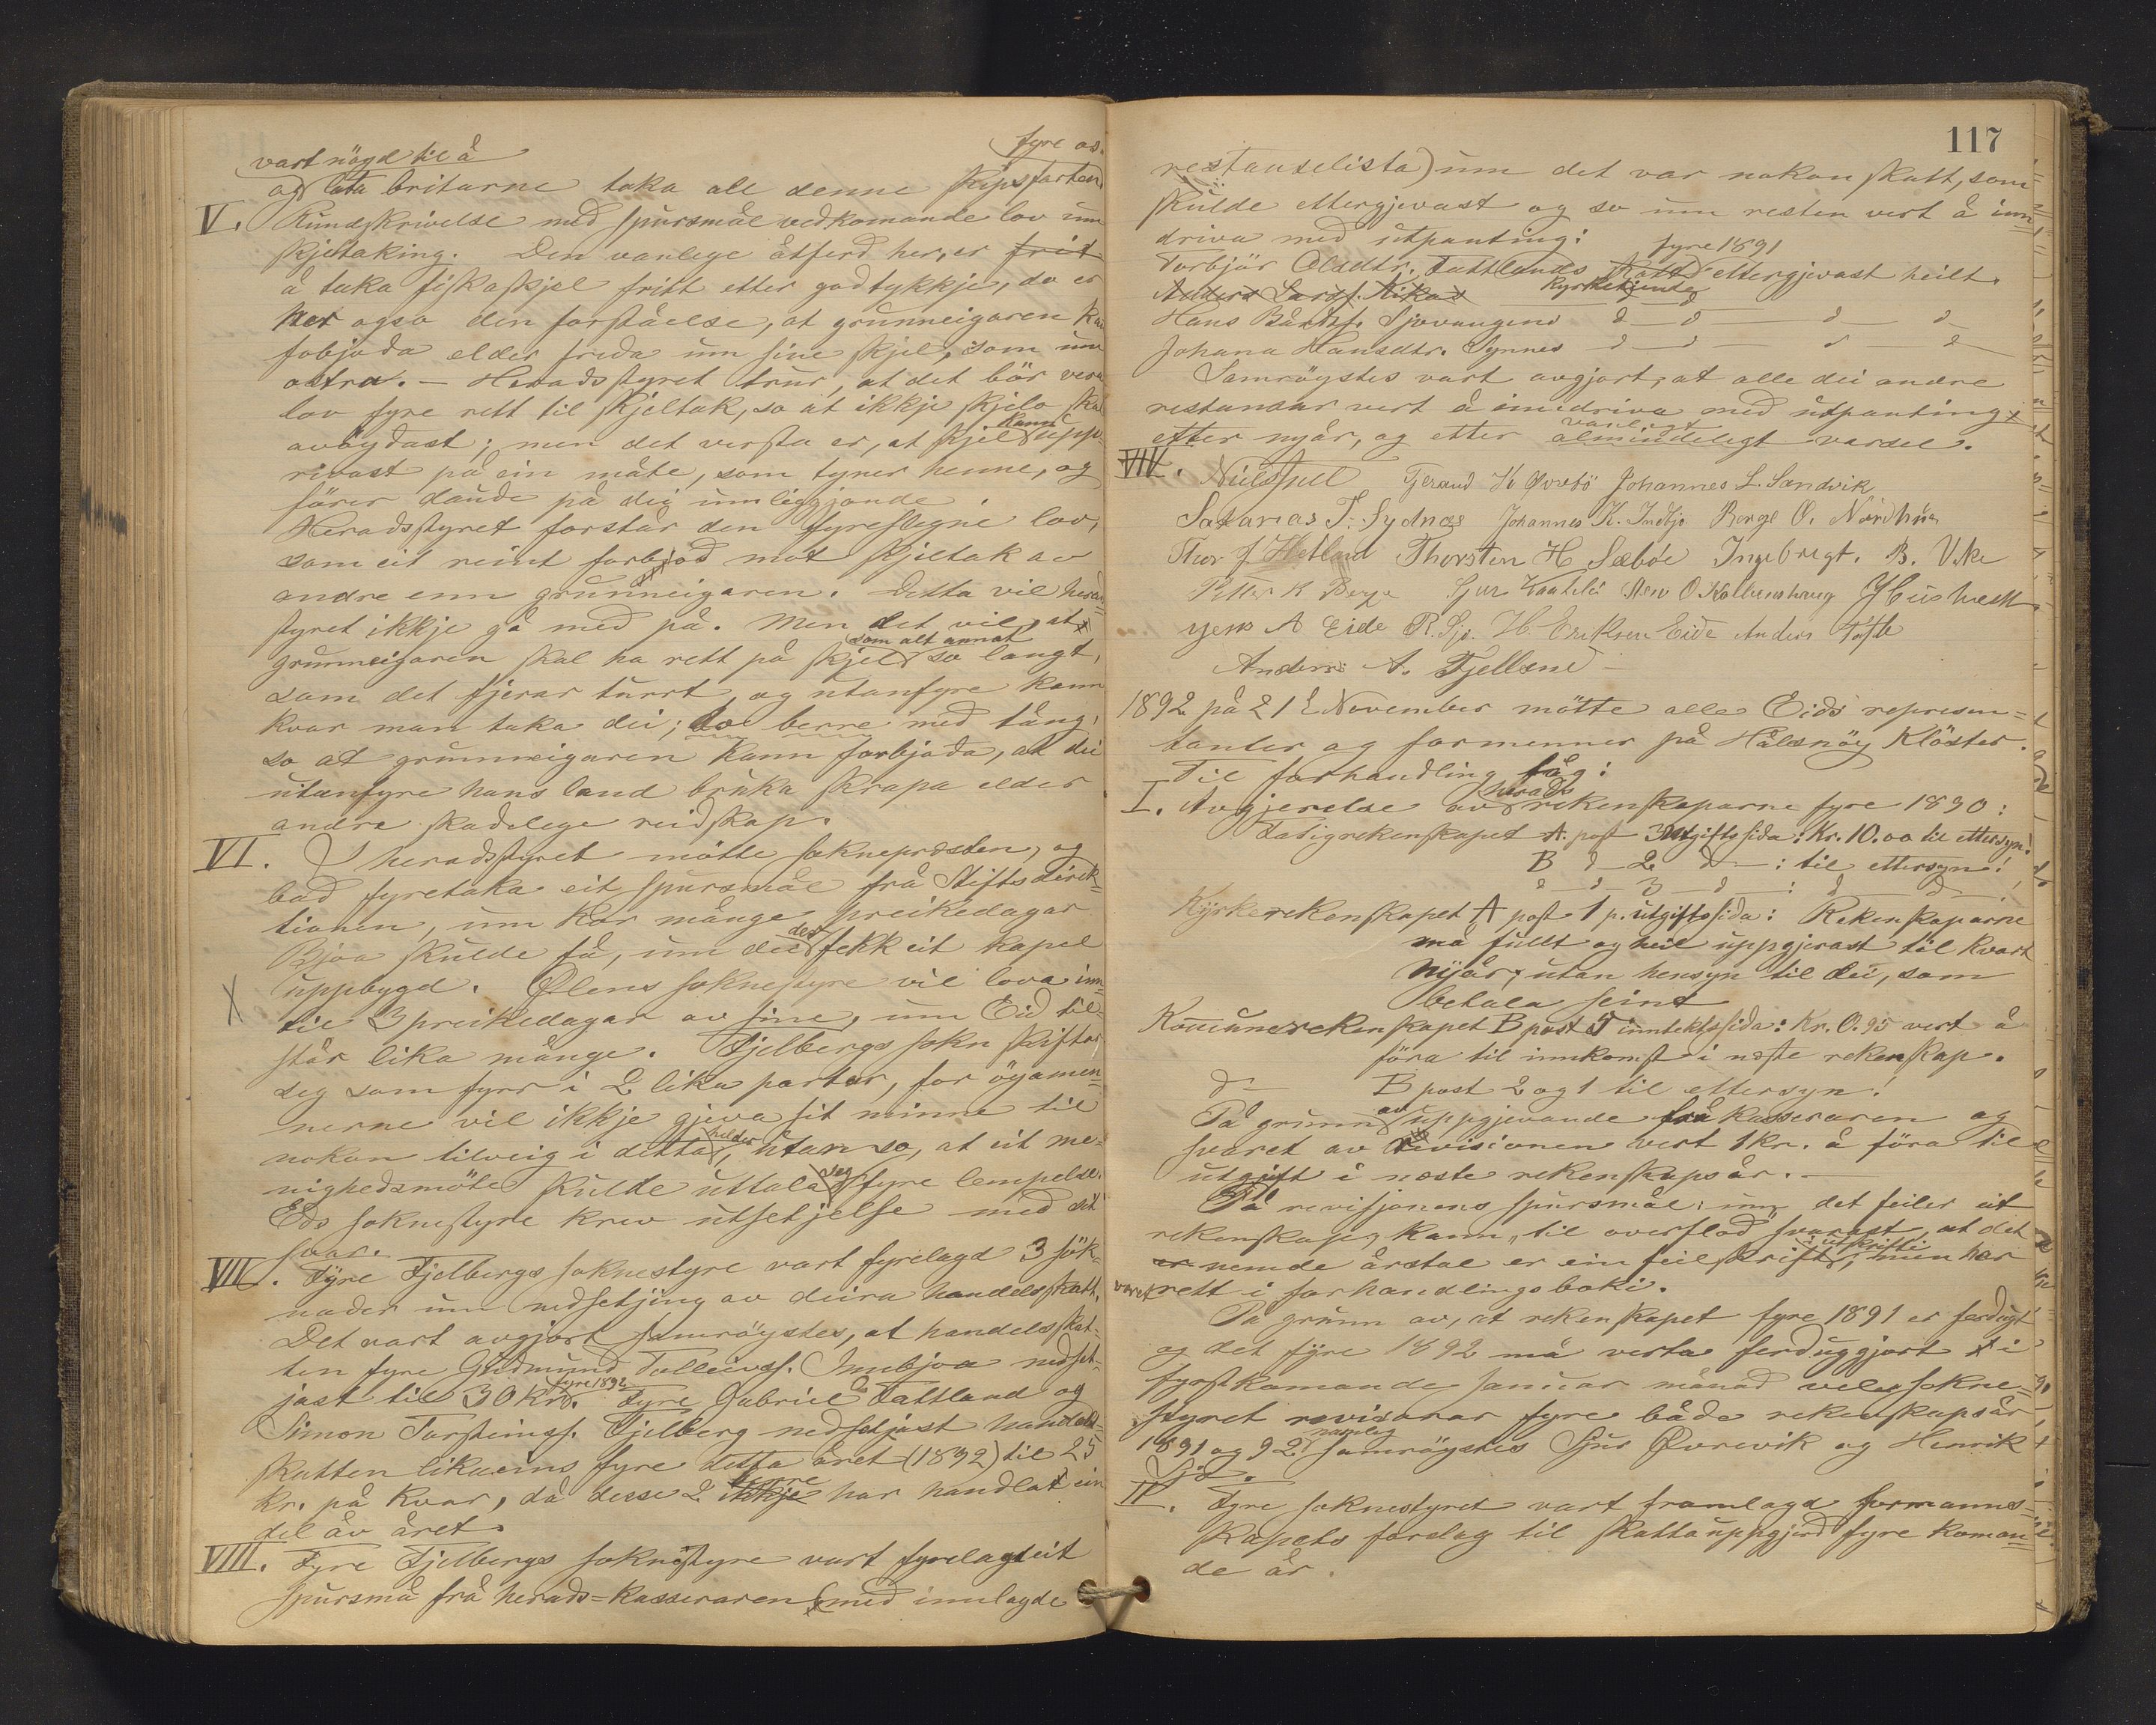 vart nögd til å fyre os.
og lata britarne taka all denne skipsfarten
V. Rundskrivelse med spursmål vedkomande lov um
skjeltaking. Den vanlege åtferd her, er frit
å taka fiskaskjel fritt etter godtykkje, do er
her ogso den forståelse, at grunneigaren kan
fobjoda elder freda um sine skjel, som um
ostra. — Heradsstyret trur, at det bör vera
lov fyre rett til skjeltak, so at ikkje skjelo skal
avöydast; men det versta er, at skjel kann upp-
rivast på ein måte, som tyner henne, og
förer daude på dei umliggjande.
Heradsstyret forstår den fyreslegne lov,
som eit reint forbjod mot skjeltak av
andre enn grunneigaren. Detta vil herad-
styret ikkje gå med på. Men det vil, at
grunneigaren skal ha rett på skjel som alt annat so langt,
som det fjerar turrt, og utanfyre kann
kvar man taka dei; do berre med tång,
so at grunneigaren kann forbjoda, at dei
utanfyre hans land bruka skrapa elder
andre skadelege reidskap.
VI. I heradsstyret mötte sokneprosten, og
bad fyretaka eit spursmål frå Stiftsdirek-
tionen, um kor mange preikedagar
Bjoa skulde få, um dei der fekk eit kapel
uppbygd. Ølens soknestyre vil lova inn-
til 3 preikedagar av sine, um Eid til-
står lika mange. Fjelbergs sokn skiftar
seg som fyrr i 2 lika partar, for öyamen-
nerne vil ikkje gjeva sit minne til
nokon tilveig i detta helder, utan so, at eit me-
nighedsmöte skulde uttala seg fyre lempelse.
Eids soknestyre krev utsetjelse med sit
svar.
VII. Fyre Fjelbergs soknestyre vart fyrelagd 3 sök-
nader um nedsetjing av deira handelsskatt.
Det vart avgjort samröystes, at handelsskat-
ten fyre Gudmund Tolleivss. Innbjoa nedset-
jast til 30 kr. fyre 1892. Fyre Gabriel Tattland og
Simon Torsteinss. Fjelberg nedsetjast handels-
skatten likaeins fyre detta året (1892) til 25
kr. på kvar, då desse 2 ikkje berre har handlat ein
del av året.
VIII. Fyre Fjelbergs soknestyre vart fyrelagt eit
spursmå frå herads=kasseraren (med innlagde
117
restanselista) um det var nokon skatt, som
skulde ettergjevast og so um resten vert å inn=
driva med utpanting:
Torbjör Olsdtr. Tattlands skatt fyre 1891 ettergjevast heilt.
Anders Larss. Vikas kyrketjenter
Hans Bårds. Sjovangens d — d — d — d
Johana Hansdtr. Synnes d — d — d — d
Samröystes vart avgjort, at alle dei andre
restansar vert å inndriva med utpanting
efter nyår, og etter almindeligt vanlegt varsel.
VIV. Neilsfull Tjerand K Øvrebö Johannes L. Sandvik
Sakarias T. Sydnæs Johannes K. Indbjo Berge O. Nordhus
Thor J. Hetland Thorsten H Sæböe Ingebrigt. B. Vike
Petter K Berge Sjur Kaatebö Sten O. Kolbenshaug J Husvest
Jens A Eide R. Sjo. H Eriksen Eide Anders Tofte
Anders A. Fjelland
1892 på 21 November mötte alle Eids represen=
tanter og formenner på Halsnöy Klöster.
Til forhandling låg:
I. Avgjerelse av herads rekenskaparne fyre 1890:
Fatigrekenskapet A. post 3 utgiftssida: Kr. 10.00 til ettersyn!
B d 2 d — : til ettersyn!
d — d — 3 — d — : d — d —
Kyrkerekenskapet A post 1 p. utgiftssida: Rekenskaparne
må fullt og heil uppgjerast til kvart
Nyår, utan hensyn til dei, som
betala seint
Kommunerekenskapet B post 5 inntektssida: Kr. 0.95 vert å
föra til innkomst i næste rekenskap.
d — B post 2 og 1 til ettersyn!
På grunn av uppgjevande frå kasseraren og
svaret av revisionen vert 1 kr. å föra til
utgift i næste rekenskapsår. —
På revisjonens spursmål: um det feiler eit
rekenskap, kann „til overflod" svarast, at det
er nemde årstal er ein feilskrift i utskrifti, men har
varet rett i forhandlingsboki.
På grunn av, at rekenskapet fyre 1891 er ferdugt
og det fyre 1892 må verta ferduggjort i
fyrstkomande Januar månad veler sokne=
styret revisorar fyre både rekenskapsår
1891 og 92. nemleg samröystes Sjur Øvrevik og Henrik
Sjo.
II. Fyre soknestyret vart framlagd formanns=
kapets forslag til skattauppgjerd fyre koman=
de år.